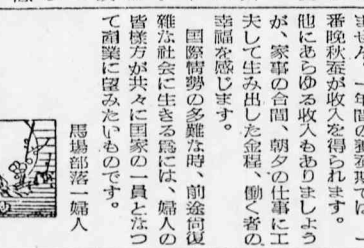 番晩秋蚕が収入を得られます。
他にあらゆる収入もありましよう
が、家事の合間、朝夕の仕事に工
夫して生み出した金程、働く者の
幸福を感じます。
国際情勢の多難な時、前途尚復
雑な社会に生きる爲には、婦人の
皆様方が共々に国家の一員となつ
て商業に望みたいものです。
馬場部落一婦人